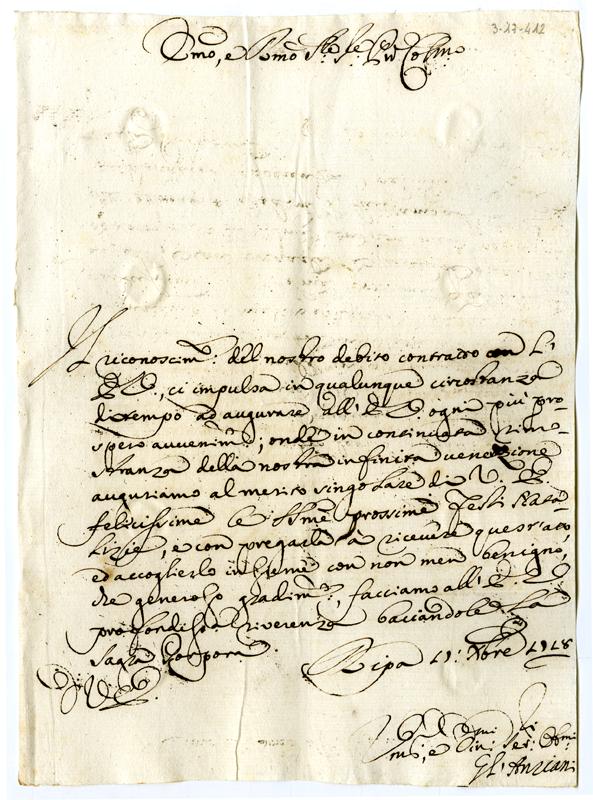 3-27-412
Emo, e Rmo Sig.e Sig.e Pron Colmo
Il riconoscim.o del nostro debito contratto con L'
E. V., ci impulsa in qualunque circostanza
di tempo ad augurare all'E. V. ogni più pro-
spero auvenim.o; onde in continuata rimo-
stranza della nostra infinita venerazione
auguriamo al merito singolare di V. E.
felicissime le SSme prossime Feste Nata-
lizie, e con pregarla a ricevere quest'atto,
ed accoglierlo insieme con non men benigno,
che generoso gradim.o, facciamo all'E. V.
profondiss.a riverenza baciandole la
Sagra Porpora.
Di V. E.
Ripa 17: Xbre 1718
Gl'Anziani